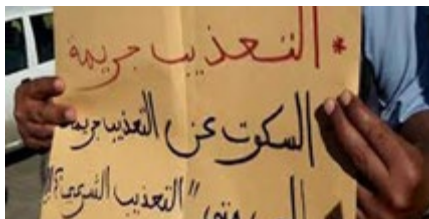 * التعذيب جريمة
السكوت عن التعذيب جريمة
"التعذيب الشرعي؟!!